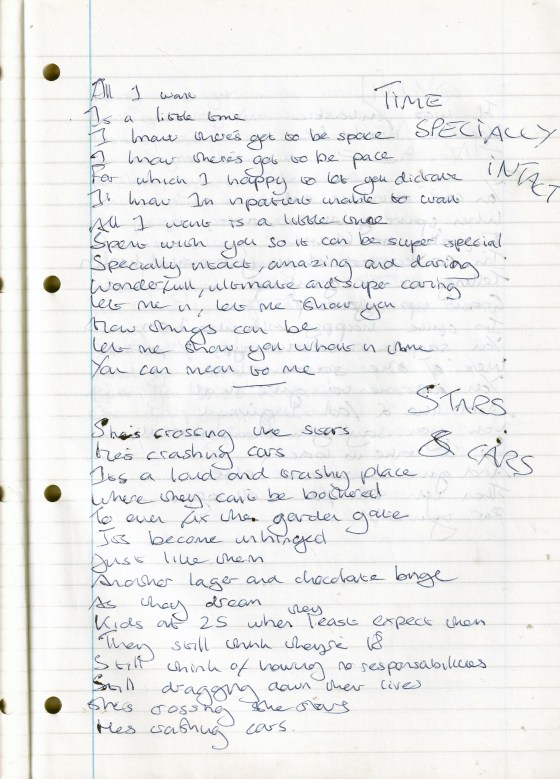 TIME
SPECIALLY
INTACT
All I want
Is a little time
I know theres got to be space
I know theres got to be pace
For which I happy to let you dictate
I know Im inpatient unable to wait
All I want is a little time
Spent with you so it can be super special
Specially intact, amazing and daring
Wonderfull, ultimate and super caring
Let me in, let me show you
How things can be
Let me show you what in time
You can mean to me
STARS
& CARS
She's crossing the stars
He's crashing cars
Its a loud and trashy place
Where they can't be bothered
To even fix the garden gate
Its become unhinged
Just like them
Another lager and chocolate binge
As they dream
Kids at 25 when they least expect them
They still think they're 18
Still think of having no responsabilities
Still dragging down their lives
She's crossing the stars
Hes crashing cars.